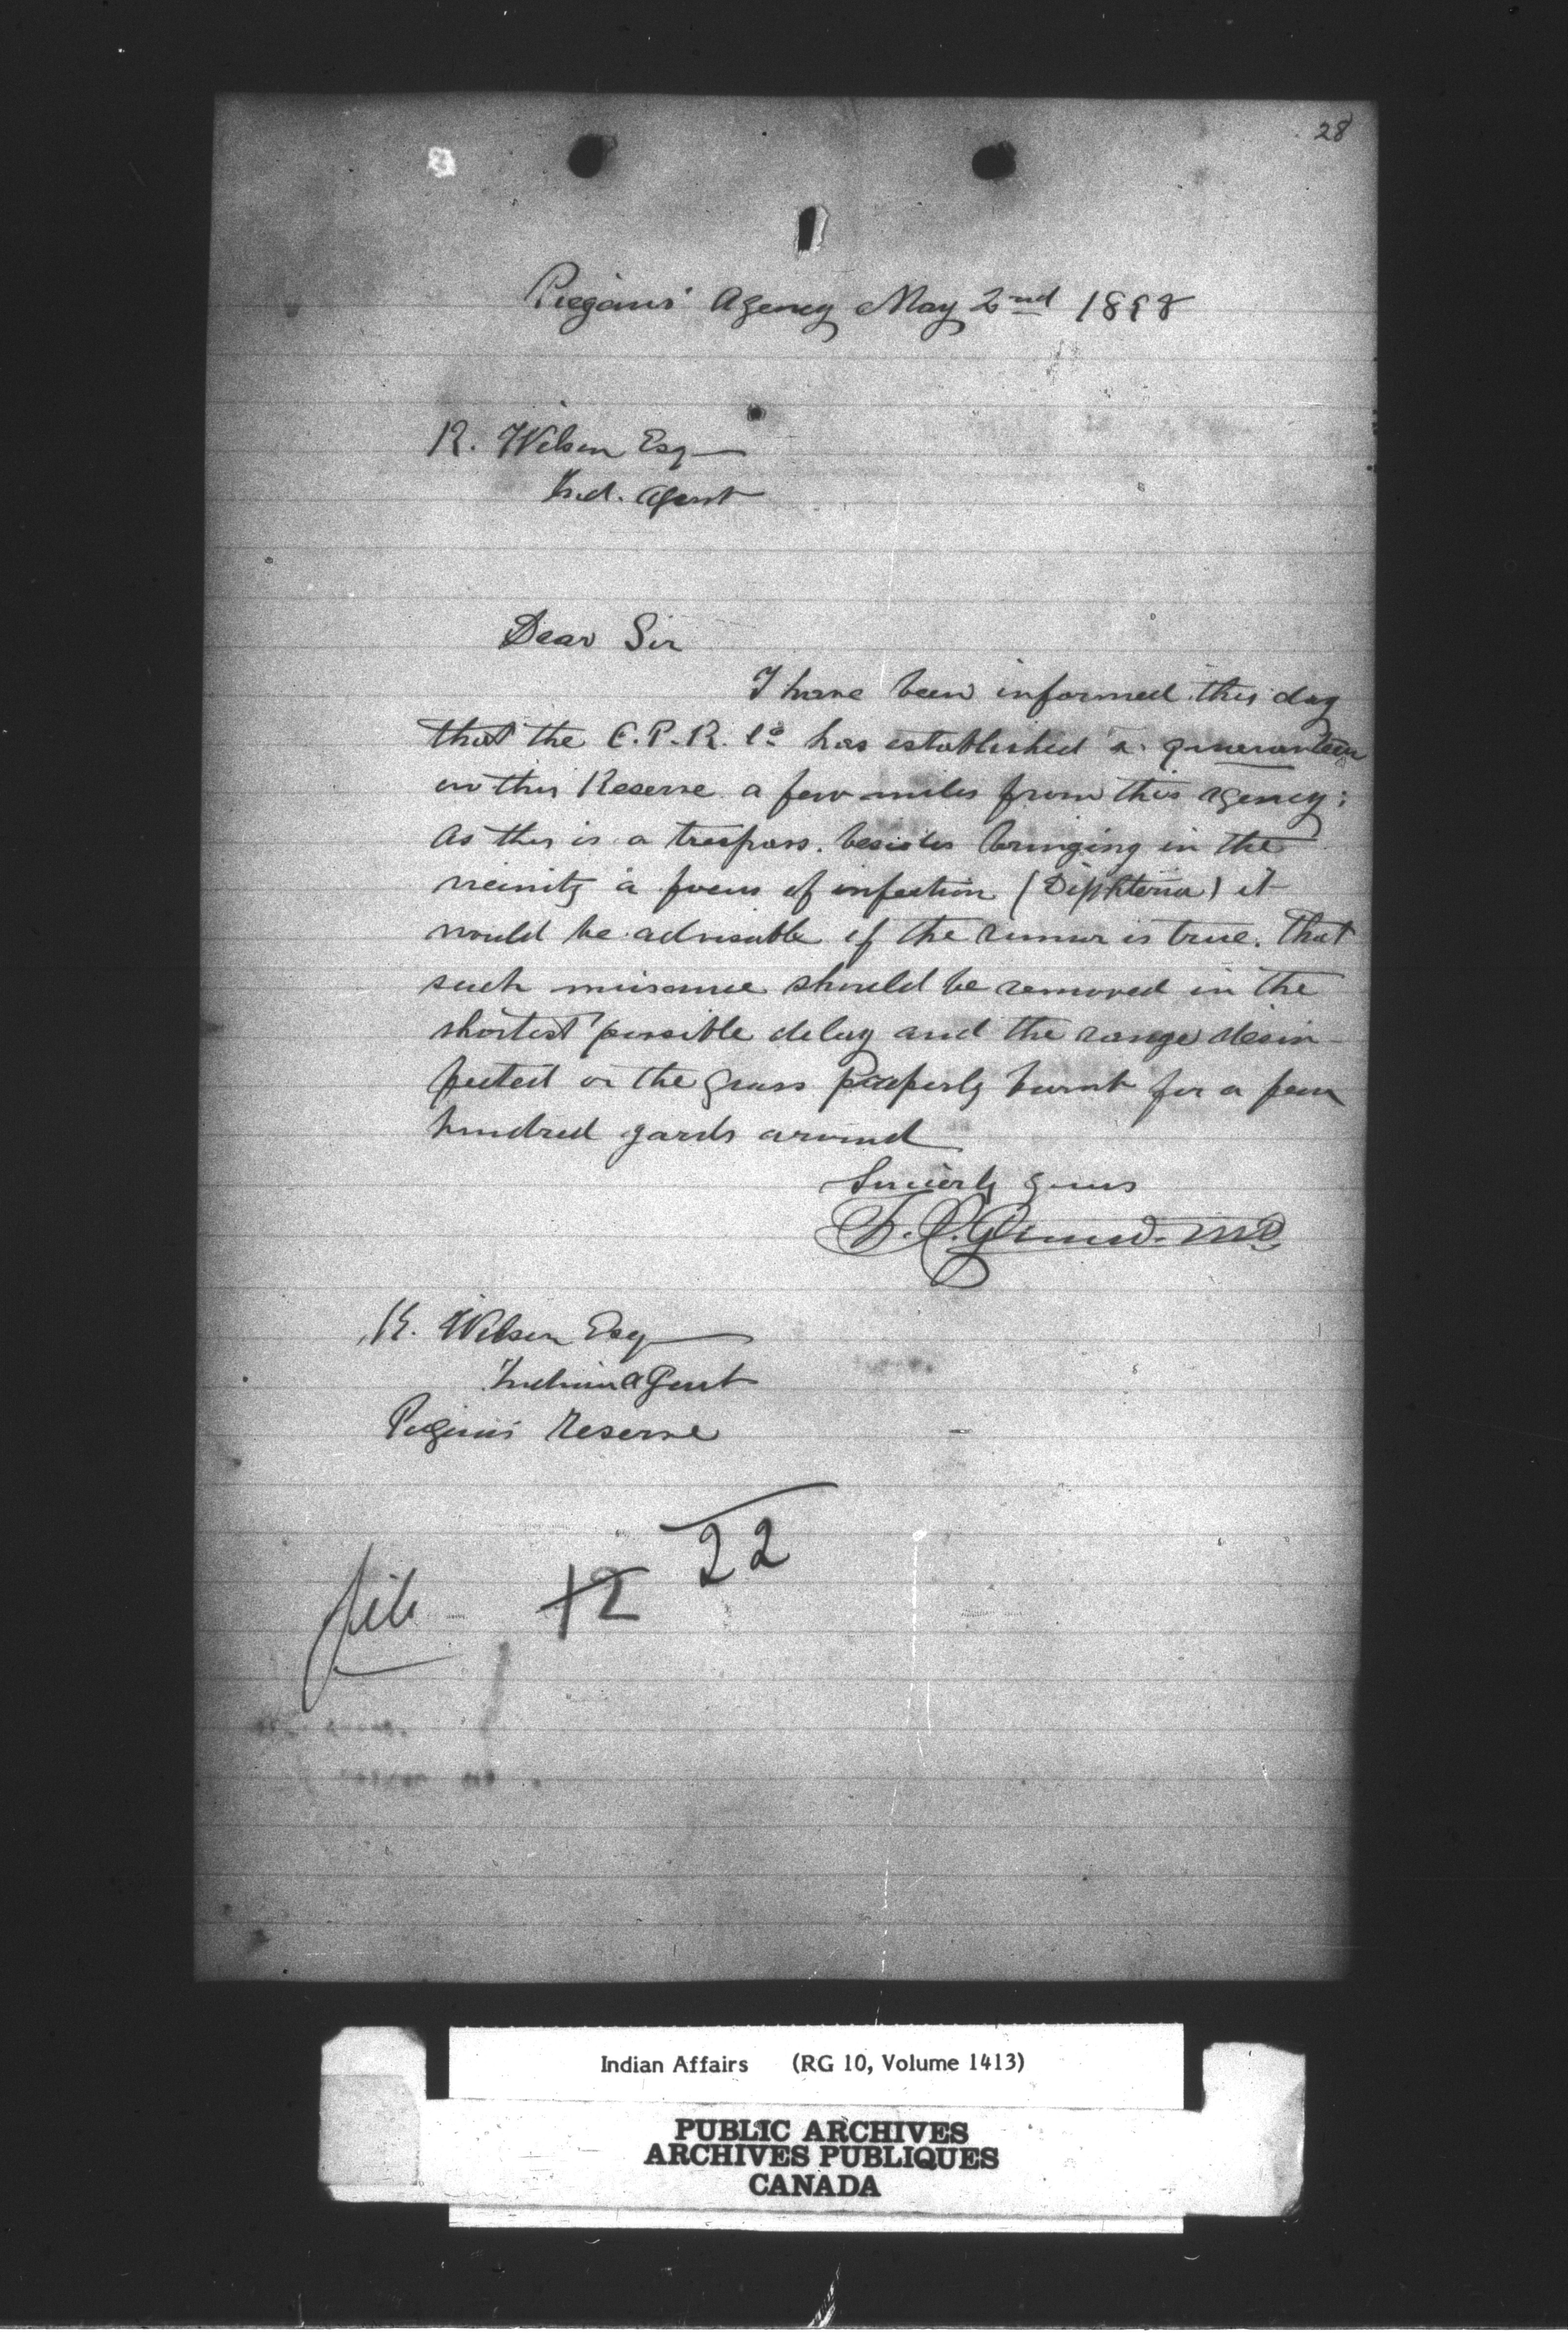 28
Piegans' Agency May 2nd 1898
R. Wilson Esq
Ind. Agent
Dear Sir
I have been informed this day
that the C.P.R. Co has established a quaranteen
on this Reserve a few miles from this agency;
as this is a trespass. besides bringing in the
vicinity a focus of infection (Diphteria) it
would be advisable if the rumor is true. that
such nuisance should be removed in the
shortest possible delay and the range desin-
fected or the grass properly burnt for a few
hundred yards around
Sincerly yours
MD
R. Wilson Esq
Indian Agent
Pegans' Reserve
file 12 22
Indian Affairs (RG 10, Volume 1413)
PUBLIC ARCHIVES
ARCHIVES PUBLIQUES
CANADA